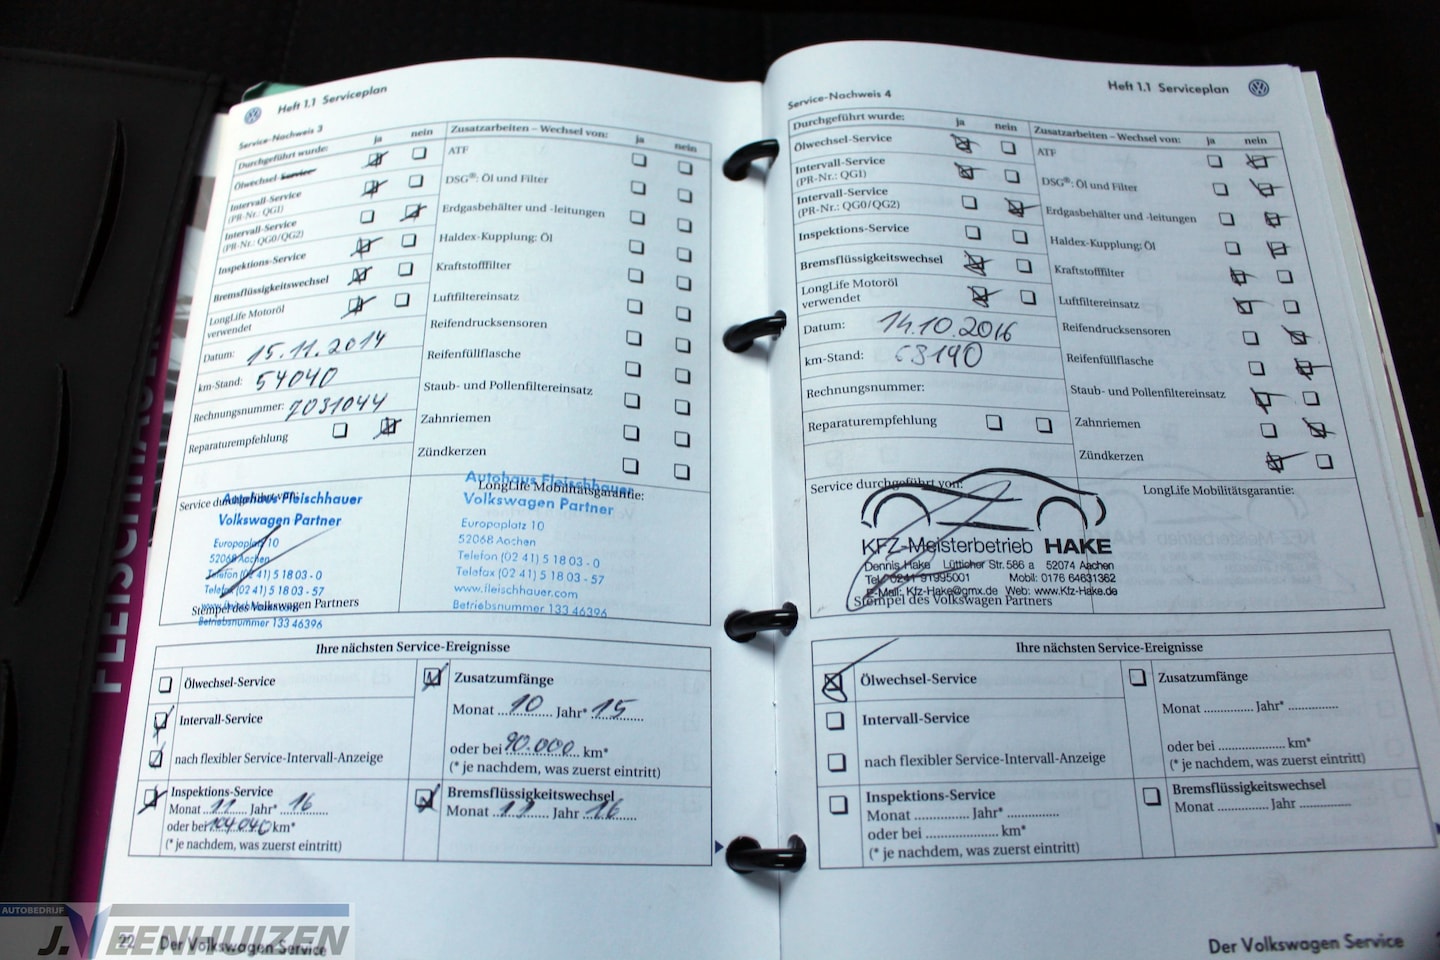 Heft 1.1 Serviceplan
Service-Nachweis 3
Durchgeführt wurde:
ja
nein
Zusatzarbeiten – Wechsel von:
ja
nein
Ölwechsel-Service
Intervall-Service
(PR-Nr.: QG1)
Intervall-Service
(PR-Nr.: QG0/QG2)
Inspektions-Service
Bremsflüssigkeitswechsel
LongLife Motoröl
verwendet
Datum: 15.11.2014
km-Stand: 54040
Rechnungsnummer: 7031044
Reparaturempfehlung
ATF
DSG®: Öl und Filter
Erdgasbehälter und -leitungen
Haldex-Kupplung: Öl
Kraftstofffilter
Luftfiltereinsatz
Reifendrucksensoren
Reifenfüllflasche
Staub- und Pollenfiltereinsatz
Zahnriemen
Zündkerzen
Service durchgeführt von:
Autohaus Fleischhauer
Volkswagen Partner
Europaplatz 10
52068 Aachen
Telefon (02 41) 5 18 03 - 0
Telefax (02 41) 5 18 03 - 57
www.fleischhauer.com
Betriebsnummer 133 46396
Stempel des Volkswagen Partners
LongLife Mobilitätsgarantie:
Autohaus Fleischhauer
Volkswagen Partner
Europaplatz 10
52068 Aachen
Telefon (02 41) 5 18 03 - 0
Telefax (02 41) 5 18 03 - 57
www.fleischhauer.com
Betriebsnummer 133 46396
Ihre nächsten Service-Ereignisse
Ölwechsel-Service
Intervall-Service
nach flexibler Service-Intervall-Anzeige
Inspektions-Service
Monat 11 Jahr* 16
oder bei 104040 km*
(* je nachdem, was zuerst eintritt)
Zusatzumfänge
Monat 10 Jahr* 15
oder bei 90.000 km*
(* je nachdem, was zuerst eintritt)
Bremsflüssigkeitswechsel
Monat 11 Jahr 16
22 Der Volkswagen Service
Heft 1.1 Serviceplan
Service-Nachweis 4
Durchgeführt wurde:
ja
nein
Zusatzarbeiten – Wechsel von:
ja
nein
Ölwechsel-Service
Intervall-Service
(PR-Nr.: QG1)
Intervall-Service
(PR-Nr.: QG0/QG2)
Inspektions-Service
Bremsflüssigkeitswechsel
LongLife Motoröl
verwendet
Datum: 14.10.2016
km-Stand: 63190
Rechnungsnummer:
Reparaturempfehlung
ATF
DSG®: Öl und Filter
Erdgasbehälter und -leitungen
Haldex-Kupplung: Öl
Kraftstofffilter
Luftfiltereinsatz
Reifendrucksensoren
Reifenfüllflasche
Staub- und Pollenfiltereinsatz
Zahnriemen
Zündkerzen
Service durchgeführt von:
KFZ-Meisterbetrieb HAKE
Dennis Hake Lütticher Str. 586 a 52074 Aachen
Tel.: 0241 91995001 Mobil: 0176 64631362
E-Mail: Kfz-Hake@gmx.de Web: www.Kfz-Hake.de
Stempel des Volkswagen Partners
LongLife Mobilitätsgarantie:
Ihre nächsten Service-Ereignisse
Ölwechsel-Service
Intervall-Service
nach flexibler Service-Intervall-Anzeige
Inspektions-Service
Monat ............... Jahr* ...............
oder bei ..................... km*
(* je nachdem, was zuerst eintritt)
Zusatzumfänge
Monat ............... Jahr* ...............
oder bei ..................... km*
(* je nachdem, was zuerst eintritt)
Bremsflüssigkeitswechsel
Monat ............... Jahr ...............
Der Volkswagen Service
FLEISCHHAUER
AUTOBEDRIJF
J. VEENHUIZEN